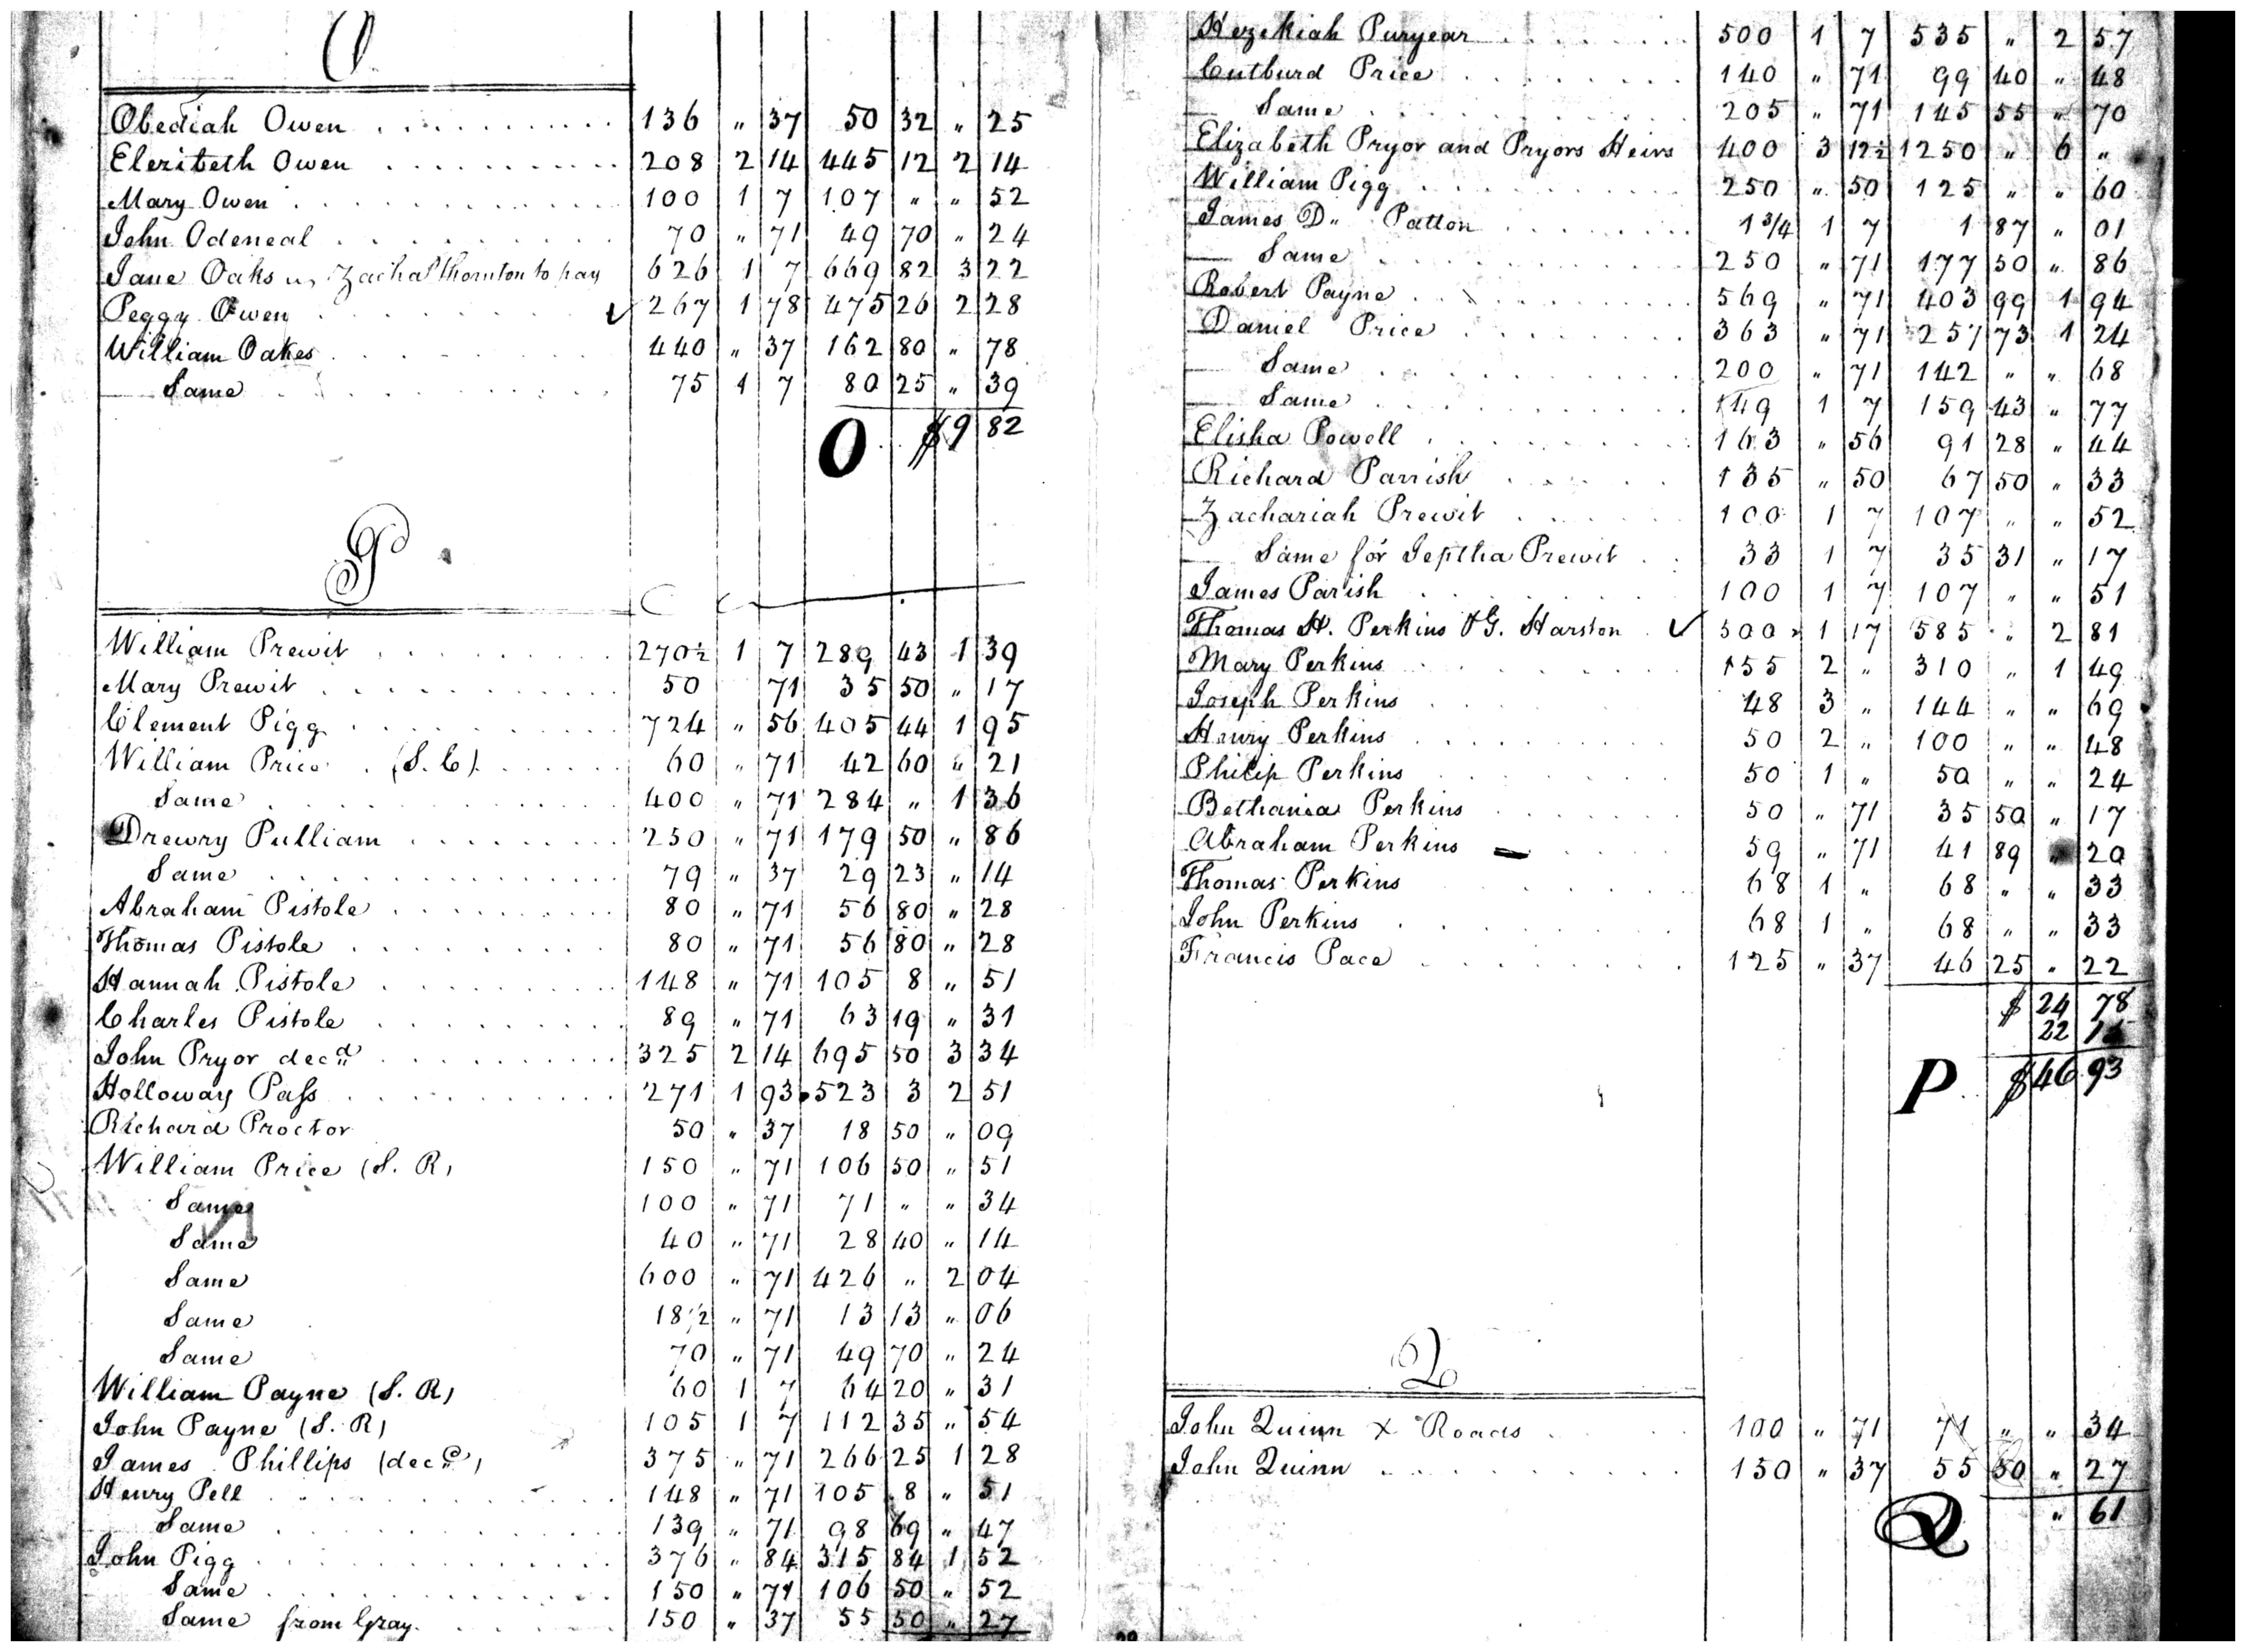 O
Obediah Owen 136 " 37 50 32 " 25
Elezibeth Owen 208 2 14 445 12 2 14
Mary Owen 100 1 7 107 " " 52
John Odeneal 70 " 71 49 70 " 24
Jane Oaks Zacha Thornton to pay 626 1 7 669 82 3 22
Peggy Owen ✓ 267 1 78 475 26 2 28
William Oakes 440 " 37 162 80 " 78
Same 75 1 7 80 25 " 39
O $9 82
P
William Prewit 270½ 1 7 289 43 1 39
Mary Prewit 50 71 35 50 " 17
Clement Pigg 724 " 56 405 44 1 95
William Price (S. C) 60 " 71 42 60 " 21
Same 400 " 71 284 " 1 36
Drewry Pulliam 250 " 71 179 50 " 86
Same 79 " 37 29 23 " 14
Abraham Pistole 80 " 71 56 80 " 28
Thomas Pistole 80 " 71 56 80 " 28
Hannah Pistole 148 " 71 105 8 " 51
Charles Pistole 89 " 71 63 19 " 31
John Pryor decd 325 2 14 695 50 3 34
Holloway Pass 271 1 93 523 3 2 51
Richard Proctor 50 " 37 18 50 " 09
William Price (S. R) 150 " 71 106 50 " 51
Same 100 " 71 71 " " 34
Same 40 " 71 28 40 " 14
Same 600 " 71 426 " 2 04
Same 18½ " 71 13 13 " 06
Same 70 " 71 49 70 " 24
William Payne (S. R) 60 1 7 64 20 " 31
John Payne (S. R) 105 1 7 112 35 " 54
James Phillips (decd) 375 " 71 266 25 1 28
Henry Pell 148 " 71 105 8 " 51
Same 139 " 71 98 69 " 47
John Pigg 376 " 84 315 84 1 52
Same 150 " 71 106 50 " 52
Same from Gray. 150 " 37 55 50 " 27
Hezekiah Puryear 500 1 7 535 " 2 57
Cutburd Price 140 " 71 99 40 " 48
Same 205 " 71 145 55 " 70
Elizabeth Pryor and Pryors Heirs 400 3 12½ 1250 " 6 "
William Pigg 250 " 50 125 " " 60
James D. Patton 1¾ 1 7 1 87 " 01
Same 250 " 71 177 50 " 86
Robert Payne 569 " 71 403 99 1 94
Daniel Price 363 " 71 257 73 1 24
Same 200 " 71 142 " " 68
Same 149 1 7 159 43 " 77
Elisha Powell 163 " 56 91 28 " 44
Richard Parrish 135 " 50 67 50 " 33
Zachariah Prewit 100 1 7 107 " " 52
Same for Jeptha Prewit 33 1 7 35 31 " 17
James Parish 100 1 7 107 " " 51
Thomas H. Perkins & G. Harston ✓ 500 1 17 585 " 2 81
Mary Perkins 155 2 " 310 " 1 49
Joseph Perkins 48 3 " 144 " " 69
Henry Perkins 50 2 " 100 " " 48
Philip Perkins 50 1 " 50 " " 24
Bethania Perkins 50 " 71 35 50 " 17
Abraham Perkins 59 " 71 41 89 " 20
Thomas Perkins 68 1 " 68 " " 33
John Perkins 68 1 " 68 " " 33
Francis Pace 125 " 37 46 25 " 22
$ 24 78
22
P $46 93
Q
John Quinn X Roads 100 " 71 71 " " 34
John Quinn 150 " 37 55 50 " 27
Q " 61